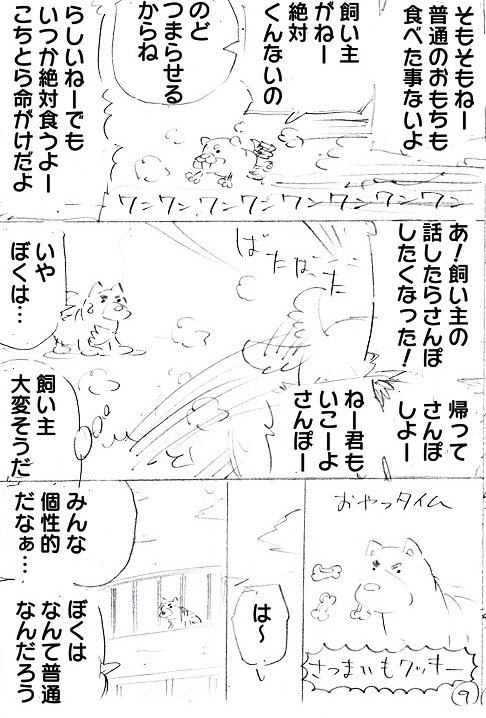 そもそもねー
普通のおもちも
食べた事ないよ
飼い主
がねー
絶対
くんないの
のど
つまらせる
からね
らしいねーでも
いつか絶対食うよー
こちとら命がけだよ
ワンワンワンワンワンワンワンワン
あ!飼い主の
話したらさんぽ
したくなった!
帰って
さんぽ
しよー
ねー君も
いこーよ
さんぽー
ばたばた
いや
ぼくは…
飼い主
大変そうだ
おやつタイム
さつまいもクッキー
は〜
みんな
個性的
だなぁ…
ぼくは
なんて普通
なんだろう
9